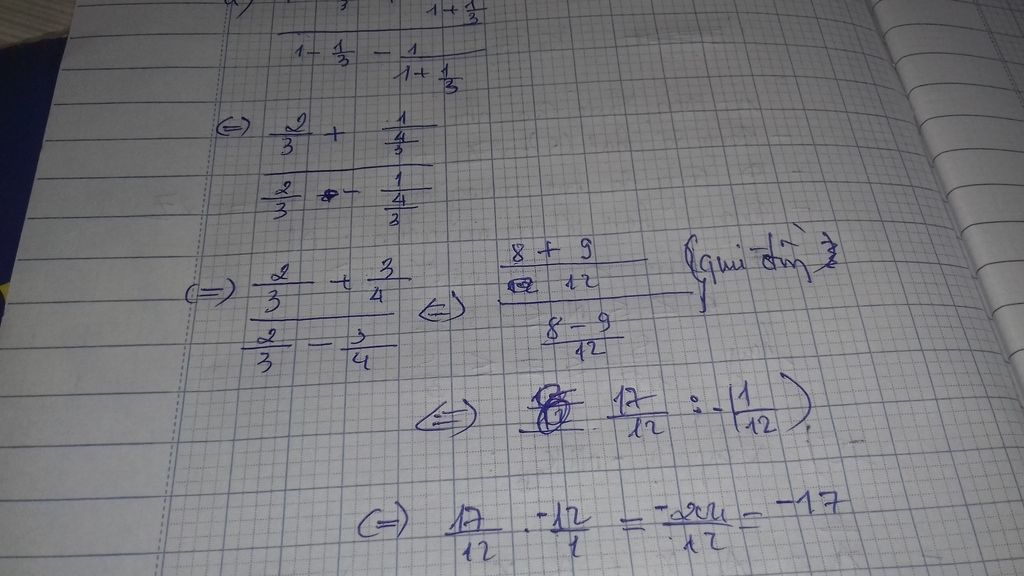 1 + 1/3
1 - 1/3 - 1/(1 + 1/3)
(=) (2/3 + 1/(4/3)) / (2/3 - 1/(4/3))
(=) (2/3 + 3/4) / (2/3 - 3/4) (=) ((8 + 9)/12) / ((8 - 9)/12) (qui đồng)
(=) 17/12 : -(1/12)
(=) 17/12 . -12/1 = -204/12 = -17